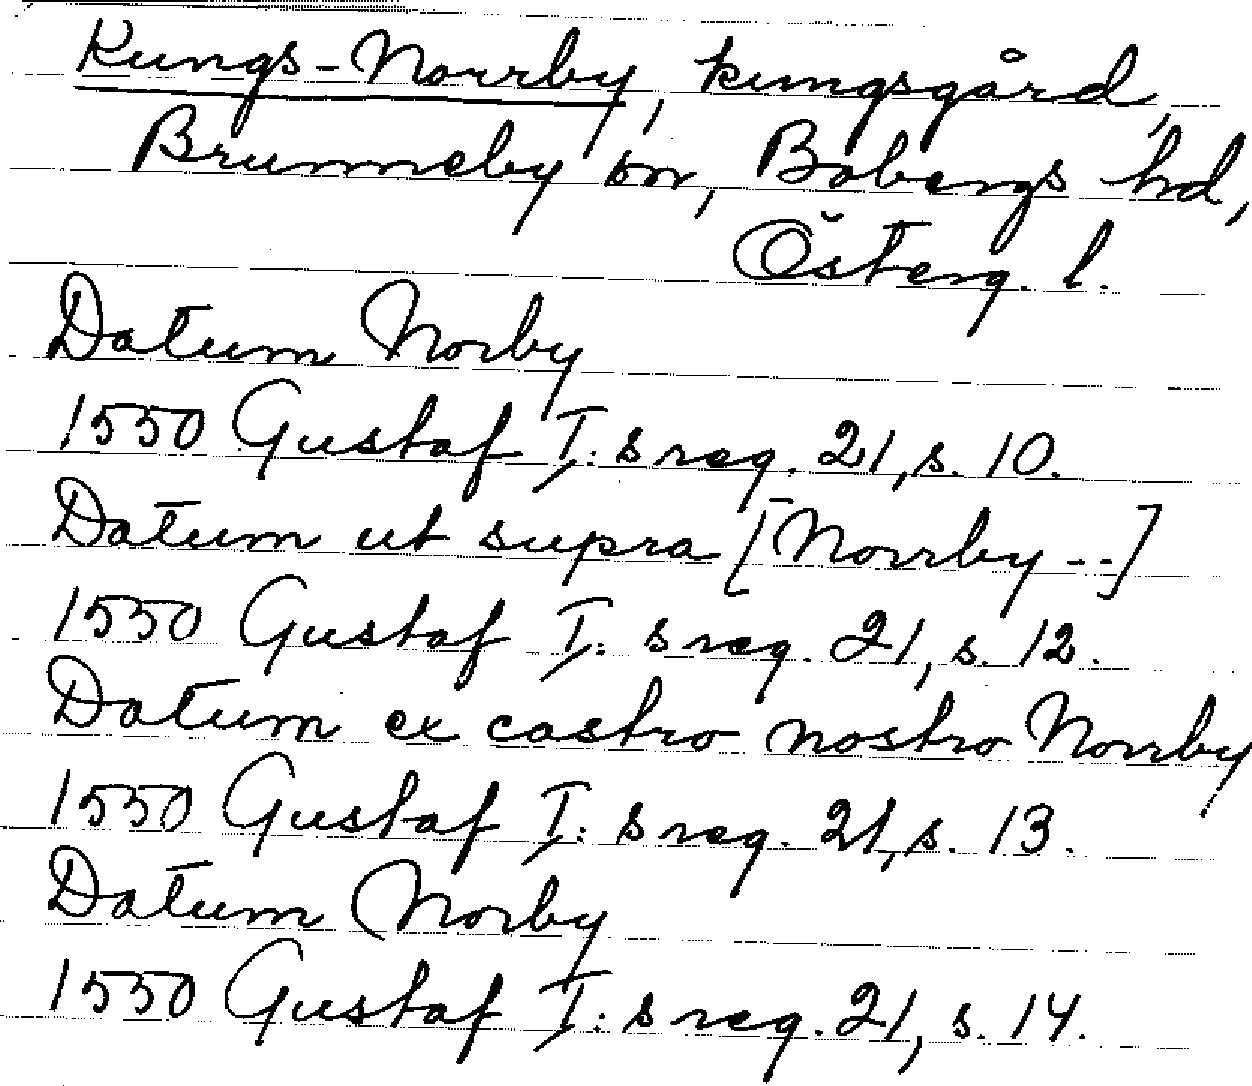 Kungs-Norrby, kungsgård,
Brunneby sn, Bobergs hd,
Österg. l.
Datum Norby
1550 Gustaf I:s reg. 21, s. 10.
Datum ut supra [Norrby --]
1550 Gustaf I:s reg. 21, s. 12.
Datum ex castro nostro Norrby
1550 Gustaf I:s reg. 21, s. 13.
Datum Norby
1550 Gustaf I:s reg. 21, s. 14.